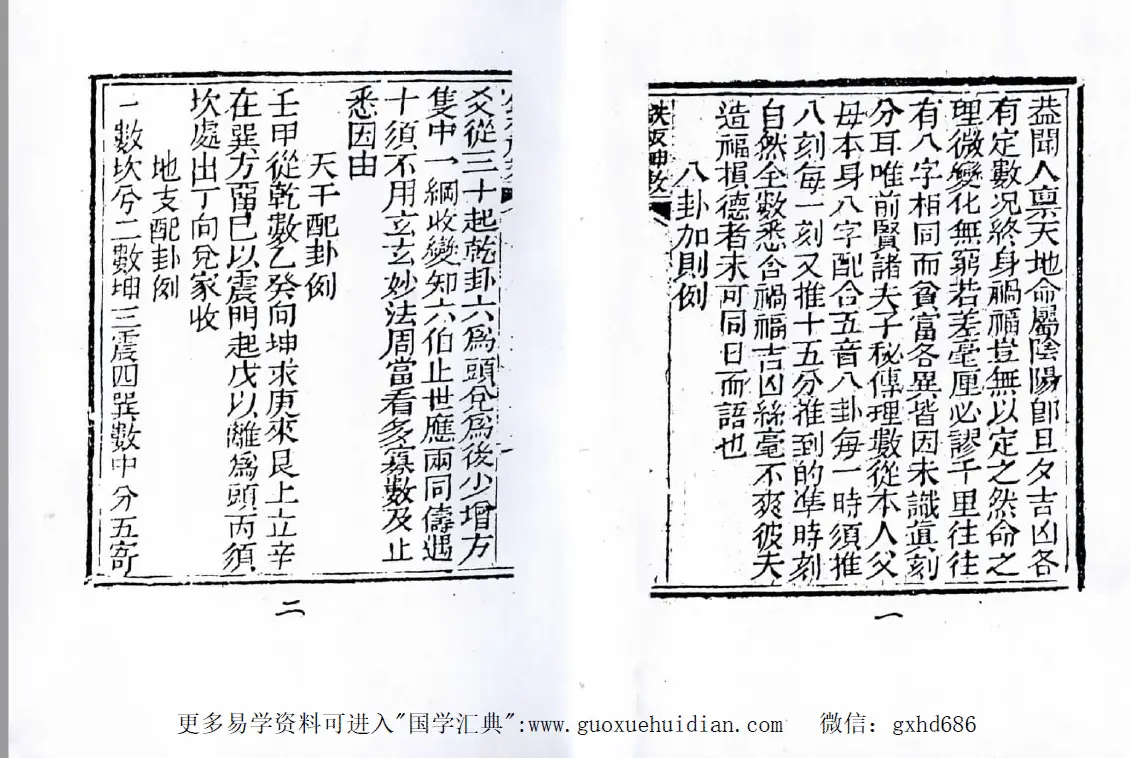 葢聞人禀天地命屬陰陽郎旦夕吉凶各
有定數况終身禍福豈無以定之然命之
理微變化無窮若差毫厘必謬千里往往
有八字相同而貧富各異皆因未識眞刻
分耳唯前賢諸夫子秘傳理數從本人父
母本身八字配合五音八卦每一時須推
八刻每一刻又推十五分推到的準時刻
自然全數悉合禍福吉凶絲毫不爽彼夫
造福損德者未可同日而語也
八卦加則例
鉄板神數
一
爻從三十起乾卦六爲頭兌爲後少增方
隻中一綱收變知六伯止世應兩同儔遇
十須不用玄玄妙法周當看多寡數及止
悉因由
天干配卦例
壬甲從乾數乙癸向坤求庚來艮上立辛
在巽方畱已以震門起戊以離爲頭丙須
坎處出丁向兌家收
地支配卦例
一數坎兮二數坤三震四巽數中分五寄
二
更多易学资料可进入"国学汇典":www.guoxuehuidian.com 微信: gxhd686